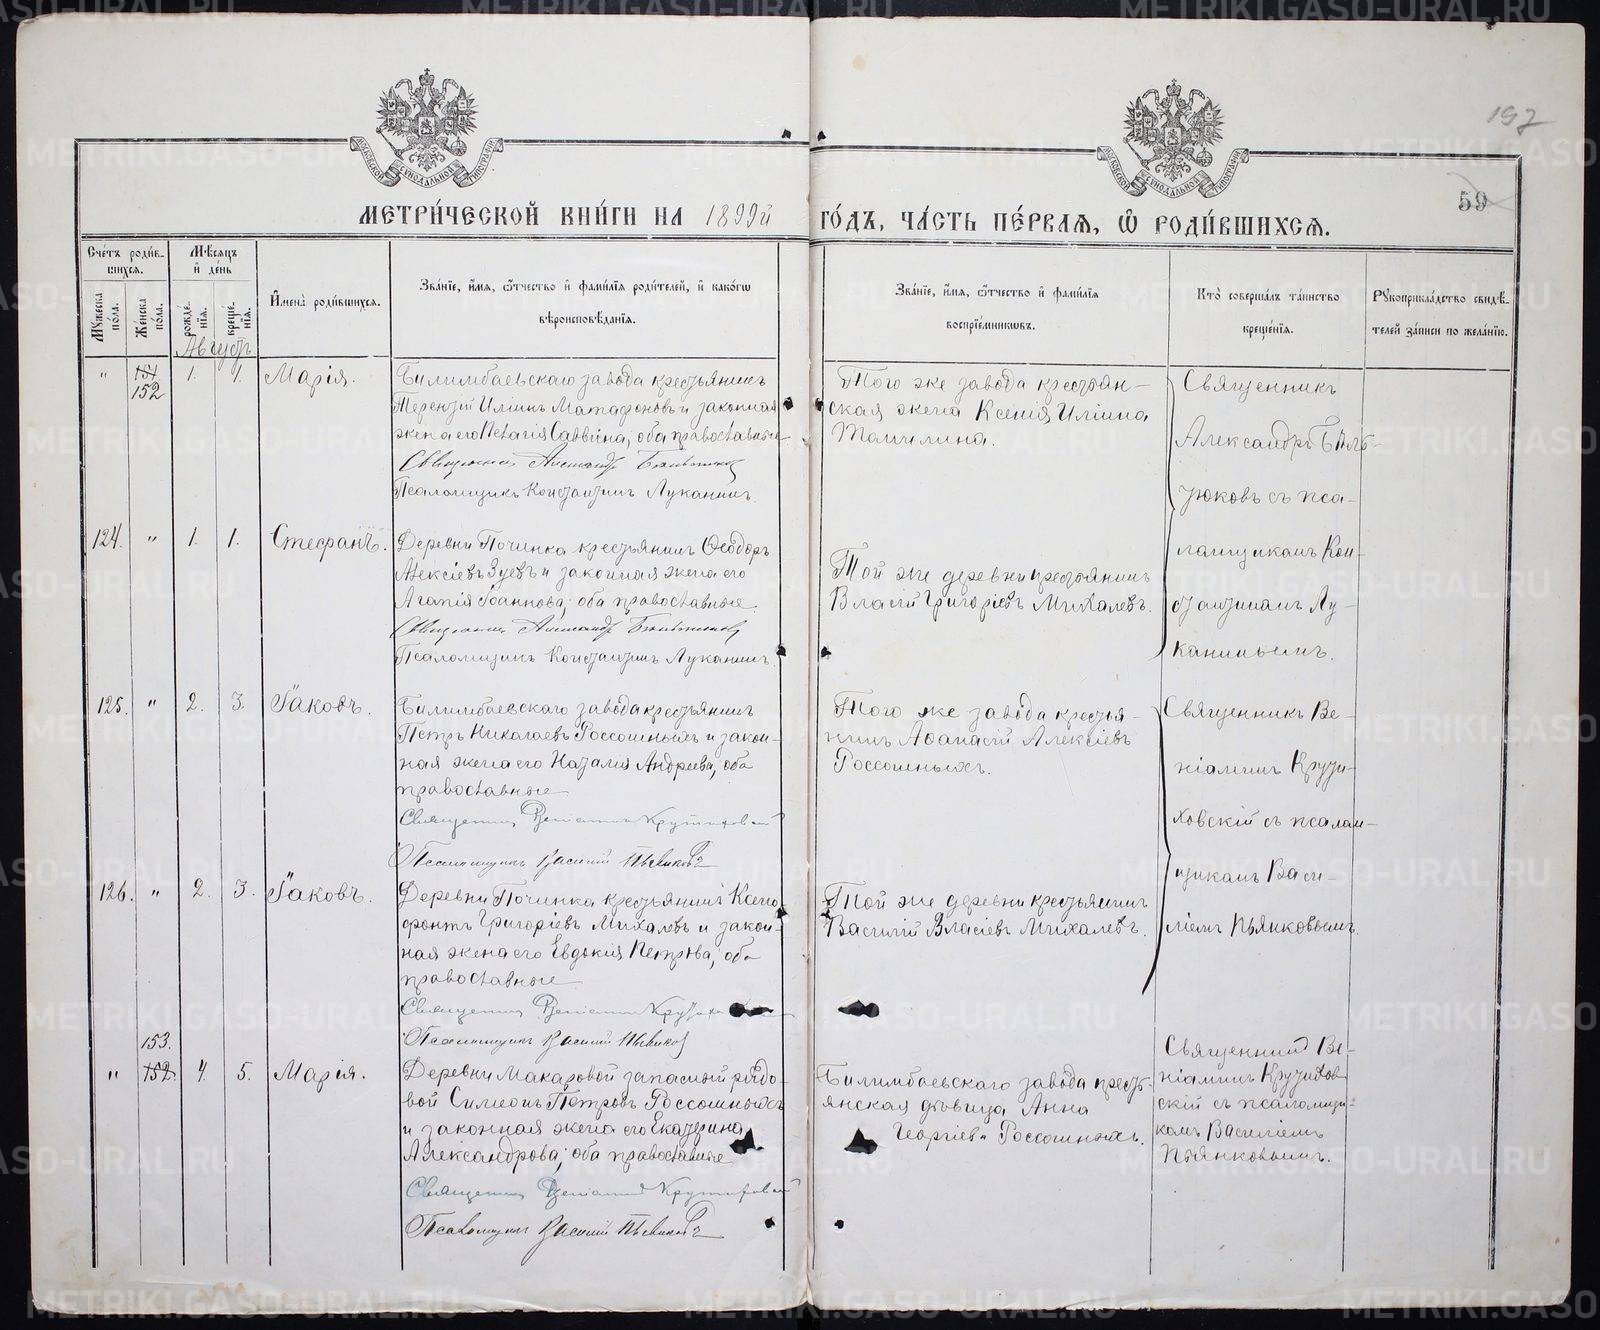 197
59
МЕТРИ́ЧЕСКОЙ КНИ́ГИ НА 1899й ГО́ДЪ, ЧА́СТЬ ПЕ́РВАЯ, Ѡ҆ РОДИ́ВШИХСЯ.
Сче́тъ роди́вшихся.
Му́жеска по́ла.
Же́нска по́ла.
Мѣ́сяцъ и҆ де́нь
рожде́нія.
креще́нія.
И҆мена̀ роди́вшихся.
Зва́нїе, и҆́мя, ѻ҆́тчество и҆ фами́лїя роди́телей, и҆ како́гѡ
вѣроисповѣ́данїя.
Зва́нїе, и҆́мя, ѻ҆́тчество и҆ фами́лїя
воспрїе́мникѡвъ.
Кто̀ соверша́лъ та́инство
креще́нїя.
Рукоприкла́дство свидѣ́-
телей за́писи по жела́нїю.
Августъ
" 151 152 1. 1. Марія.
Билимбаевскаго завода крестьянинъ
Терентій Иліинъ Матафоновъ и законная
жена его Пелагія Саввина, оба православные
Священникъ Александръ
Псаломщикъ Константинъ Луканинъ.
Того же завода крестьян-
ская жена Ксенія Иліина
Томилина.
Священникъ
Александръ Бѣль-
тюковъ съ пса-
ломщикомъ Кон-
стантиномъ Лу-
канинымъ.
124. " 1. 1. Стефанъ.
Деревни Починка крестьянинъ Ѳеодоръ
Алексіевъ Зуевъ и законная жена его
Агапія Іоаннова, оба православные.
Священникъ Александръ
Псаломщикъ Константинъ Луканинъ.
Той же деревни крестьянинъ
Власій Григоріевъ Михалевъ.
125. " 2. 3. Іаковъ.
Билимбаевскаго завода крестьянинъ
Петръ Николаевъ Россошныхъ и закон-
ная жена его Наталія Андреева, оба
православные
Священникъ Веніаминъ Крутиховскій
Псаломщикъ Василій Пьянковъ
Того же завода крестья-
нинъ Аѳанасій Алексіевъ
Россошныхъ.
Священникъ Ве-
ніаминъ Крути-
ховскій съ псалом-
щикомъ Васи-
ліемъ Пьянковымъ.
126. " 2. 3. Іаковъ.
Деревни Починка крестьянинъ Ксено-
фонтъ Григоріевъ Михалевъ и закон-
ная жена его Евдокія Петрова, оба
православные
Священникъ Веніаминъ
Псаломщикъ Василій Пьянковъ
Той же деревни крестьянинъ
Василій Власіевъ Михалевъ.
" 153. 152. 4. 5. Марія.
Деревни Макаровой запасный рядо-
вой Симеонъ Петровъ Россошныхъ
и законная жена его Екатерина
Александрова, оба православные
Священникъ Веніаминъ Крутиховскій
Псаломщикъ Василій Пьянковъ
Билимбаевскаго завода кресть-
янская дѣвица Анна
Георгіева Россошныхъ.
Священник Ве-
ніаминъ Крутихов-
скій съ псаломщи-
комъ Василіемъ
Пьянковымъ.
METRIKI.GASO-URAL.RU